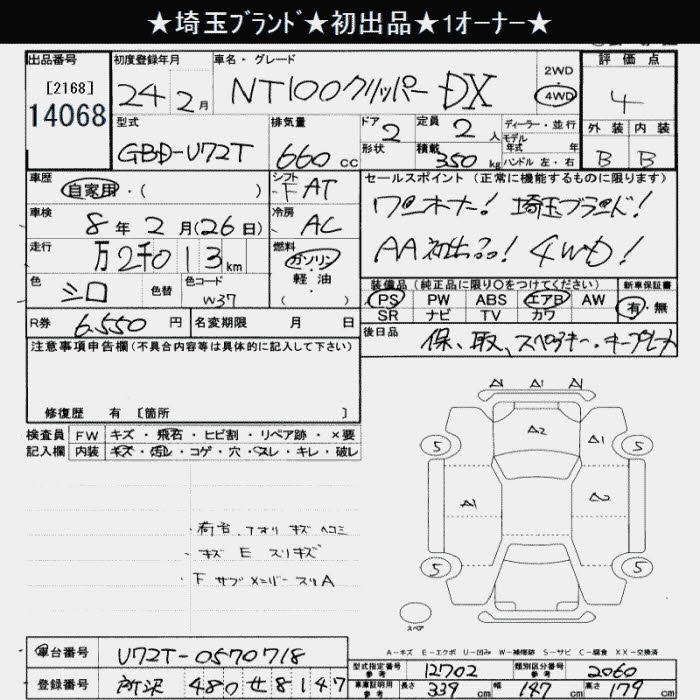 ★埼玉ﾌﾞﾗﾝﾄﾞ★初出品★1オーナー★
出品番号 初度登録年月 車名・グレード 2WD 評価点
[2168] 24年2月 NT100クリッパー DX 4WD 4
14068 型式 排気量 ドア 定員 ディーラー・並行 外装 内装
GBD-U72T 660cc 2 2人 モデル年式 年 B B
形状 積載 350kg ハンドル 左・右
車歴 シフト セールスポイント (正常に機能するものに限ります)
自家用・( ) F AT ワンオーナー! 埼玉ブランド!
車検 冷房 AA初出品! 4WD!
8年2月(26日) AC
走行 燃料
万2千013km ガソリン
色 色替 色コード 軽油 装備品 (純正品に限り○をつけてください) 新車保証書
シロ W37 ( ) PS PW ABS エアB AW 有・無
SR ナビ TV カワ
R券 6,550円 名変期限 月 日 後日品
注意事項申告欄 (不具合内容等は具体的に記入して下さい) 保、取、スペアキー・キープレート
修復歴 有 [箇所 ]
検査員 FW キズ・飛石・ヒビ割・リペア跡・×要
記入欄 内装 キズ・汚レ・コゲ・穴・スレ・キレ・破レ
A A1 A
A2 A1
5 5
A1 A2
・荷台、アオリ キズ ヘコミ
・キズ E スリキズ
・F サブメンバー スリA
5 5
スペア
A-キズ E-エクボ U-凹み W-補修跡 S-サビ C-腐食 XX-交換済
車台番号 U72T-0570718 型式指定番号 参考 12702 類別区分番号 参考 2060
登録番号 所沢 480 せ 8147 車庫証明用 参考 長さ 339cm 幅 147cm 高さ 179cm